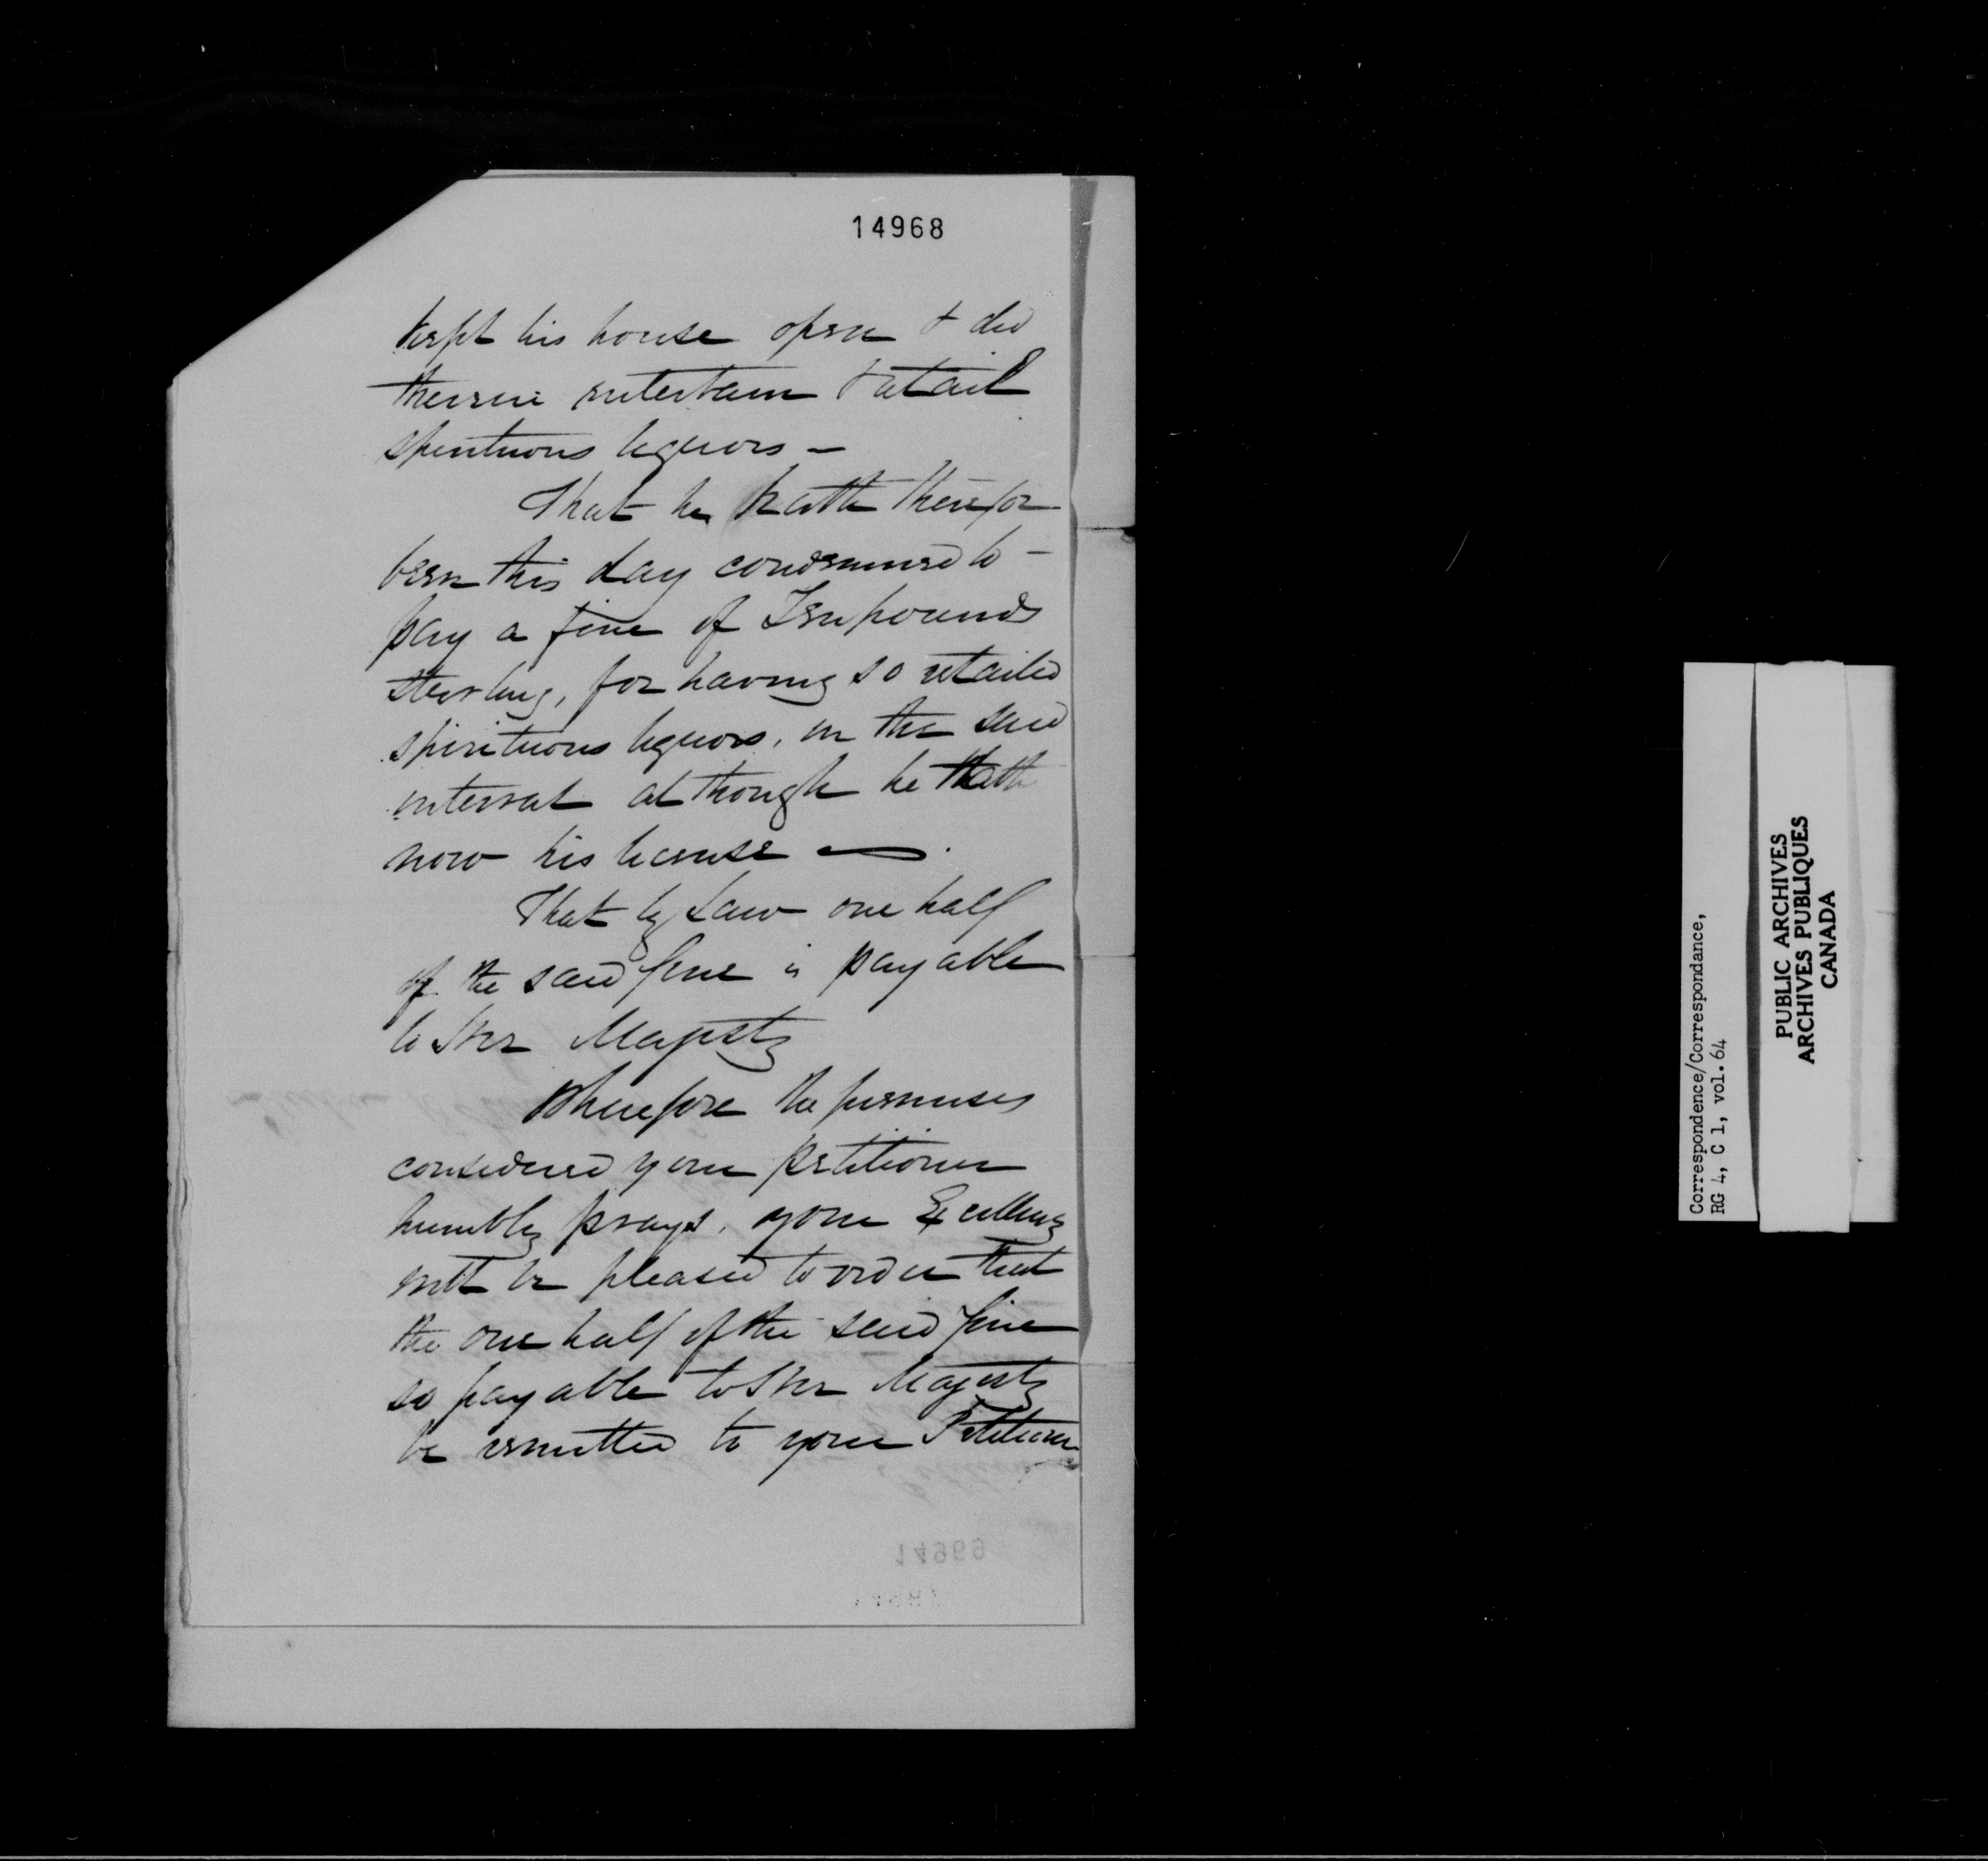 14968
kept his house open & did
therein entertain & retail
spirituous liquors –
That he hath therefor
been this day condemned to –
pay a fine of Ten pounds
sterling, for having so retailed
spirituous liquors, in the said
interval although he hath
now his license
That by Law one half
of the said fine is payable
to Her Majesty
Wherefore the premises
considered your petitioner
humbly prays, your Excellency
will be pleased to order that
the one half of the said fine
so payable to Her Majesty
be remitted to your Petitioner
14969
Correspondence/Correspondance,
RG 4, C 1, vol. 64
PUBLIC ARCHIVES
ARCHIVES PUBLIQUES
CANADA